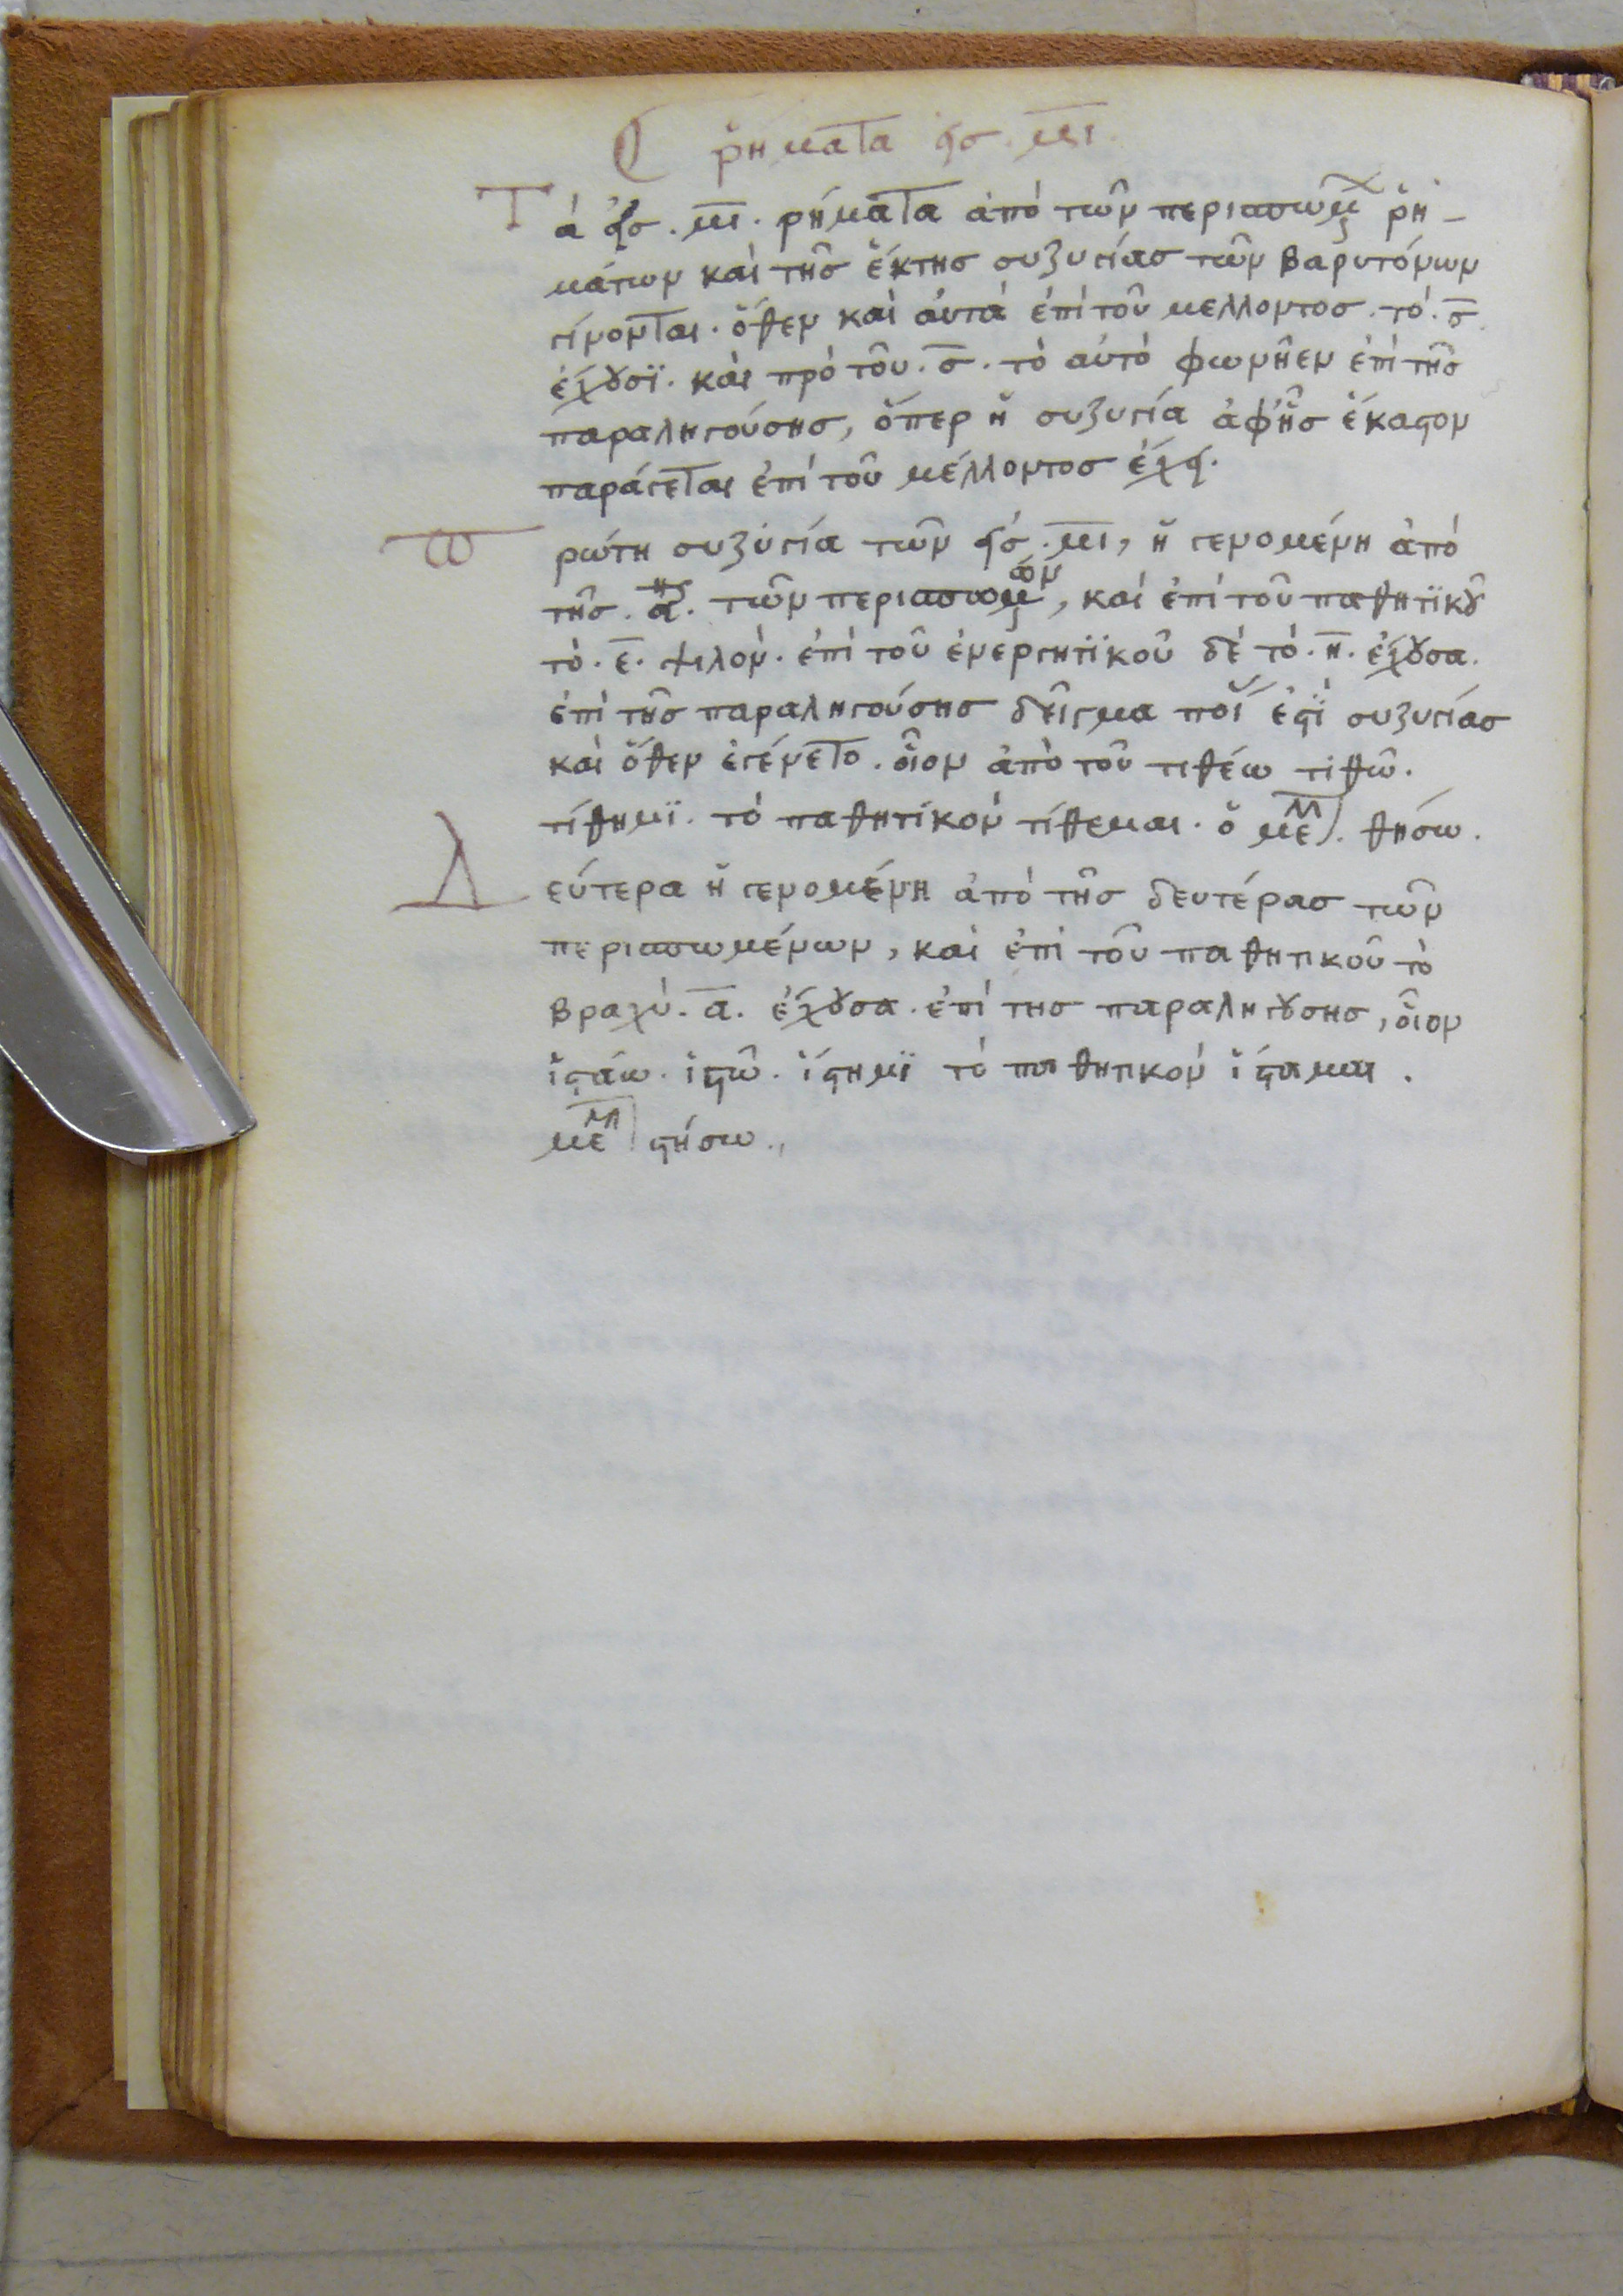 ῥήματα εἰς. μι.
Τά εἰς. μι. ρήματα ἀπό τῶν περισπωμ ῥη-
μάτων καὶ τῆς ἕκτης συζυγίας τῶν βαρυτόνων
γίνονται. ὅθεν καὶ ἀυτά ἐπί τοῦ μελλοντος. τό. σ.
ἐχουσϊ. καὶ πρό τοῦ. σ. τὸ αὐτό φωνῆεν ἐπί τῆς
παραληγούσης, ὅπερ ἡ συζυγία ἀφ' ἧς ἕκαστον
παράγεται ἐπί τοῦ μέλλοντος ἐχει.
Πρώτη συζυγία τῶν εἰς. μι, ἡ γενομένη ἀπό
τῆς. ας. τῶν περισπωμων, καί ἐπί τοῦ παθητϊκοῦ
τό. ε. ψιλον. ἐπί τοῦ ἐνεργητϊκοῦ δέ τό. η. ἐχουσα.
ἐπί τῆς παραληγούσης δεῖγμα ποί ἐστϊ συζυγίας
καὶ ὅθεν ἐγένετο. οἷον ἀπὸ τοῦ τιθέω τιθῶ.
τίθημϊ. τό παθητίκον τίθεμαι. ὁ μελ. θήσω.
Δεύτερα ἡ γενομένη ἀπό τῆς δευτέρας τῶν
περισπωμένων, καί ἐπί τοῦ παθητικοῦ τὸ
βραχύ. α. ἐχουσα. ἐπί της παραληγουσης, οἷον
ἱστάω. ἱστῶ. ἵστημϊ τό παθητικον ἵσταμαι.
μελ στήσω.,